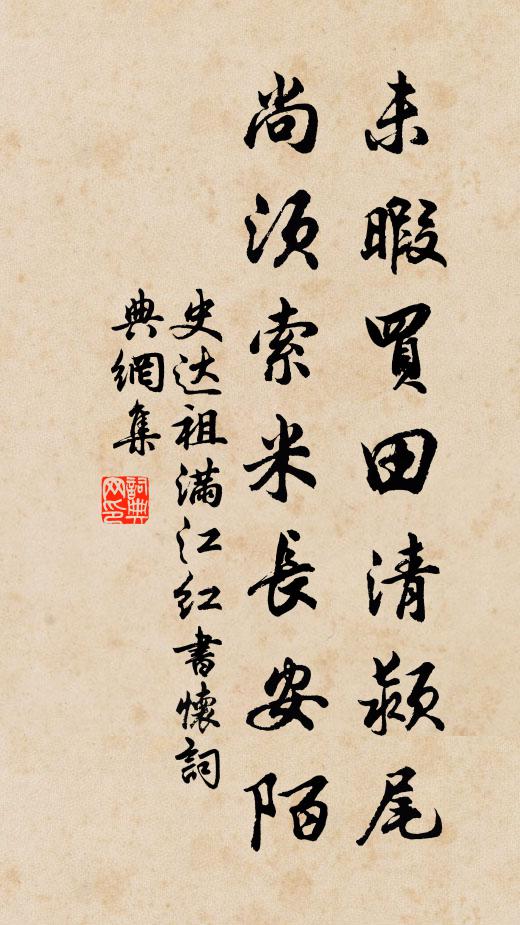 未暇買田清颍尾
尚須索米長安陌
史达祖满江红書懷詞
典網集
詞典网印